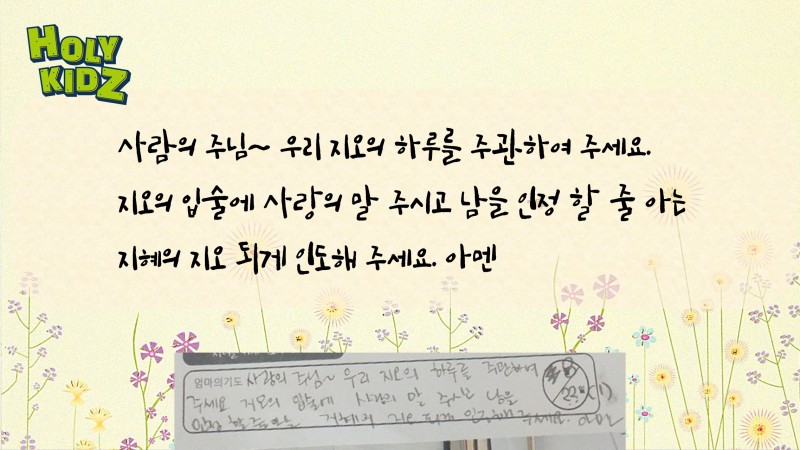 HOLY
KIDZ
사람의 주님~ 우리 지오의 하루를 주관하여 주세요.
지오의 입술에 사랑의 말 주시고 남을 인정 할 줄 아는
지혜의 지오 되게 인도해 주세요. 아멘
엄마의기도 사랑의 주님~ 우리 지오의 하루를 주관하여
주세요 지오의 입술에 사랑의 말 주시고 남을
인정 할 줄 아는 지혜의 지오 되게 인도해 주세요. 아멘